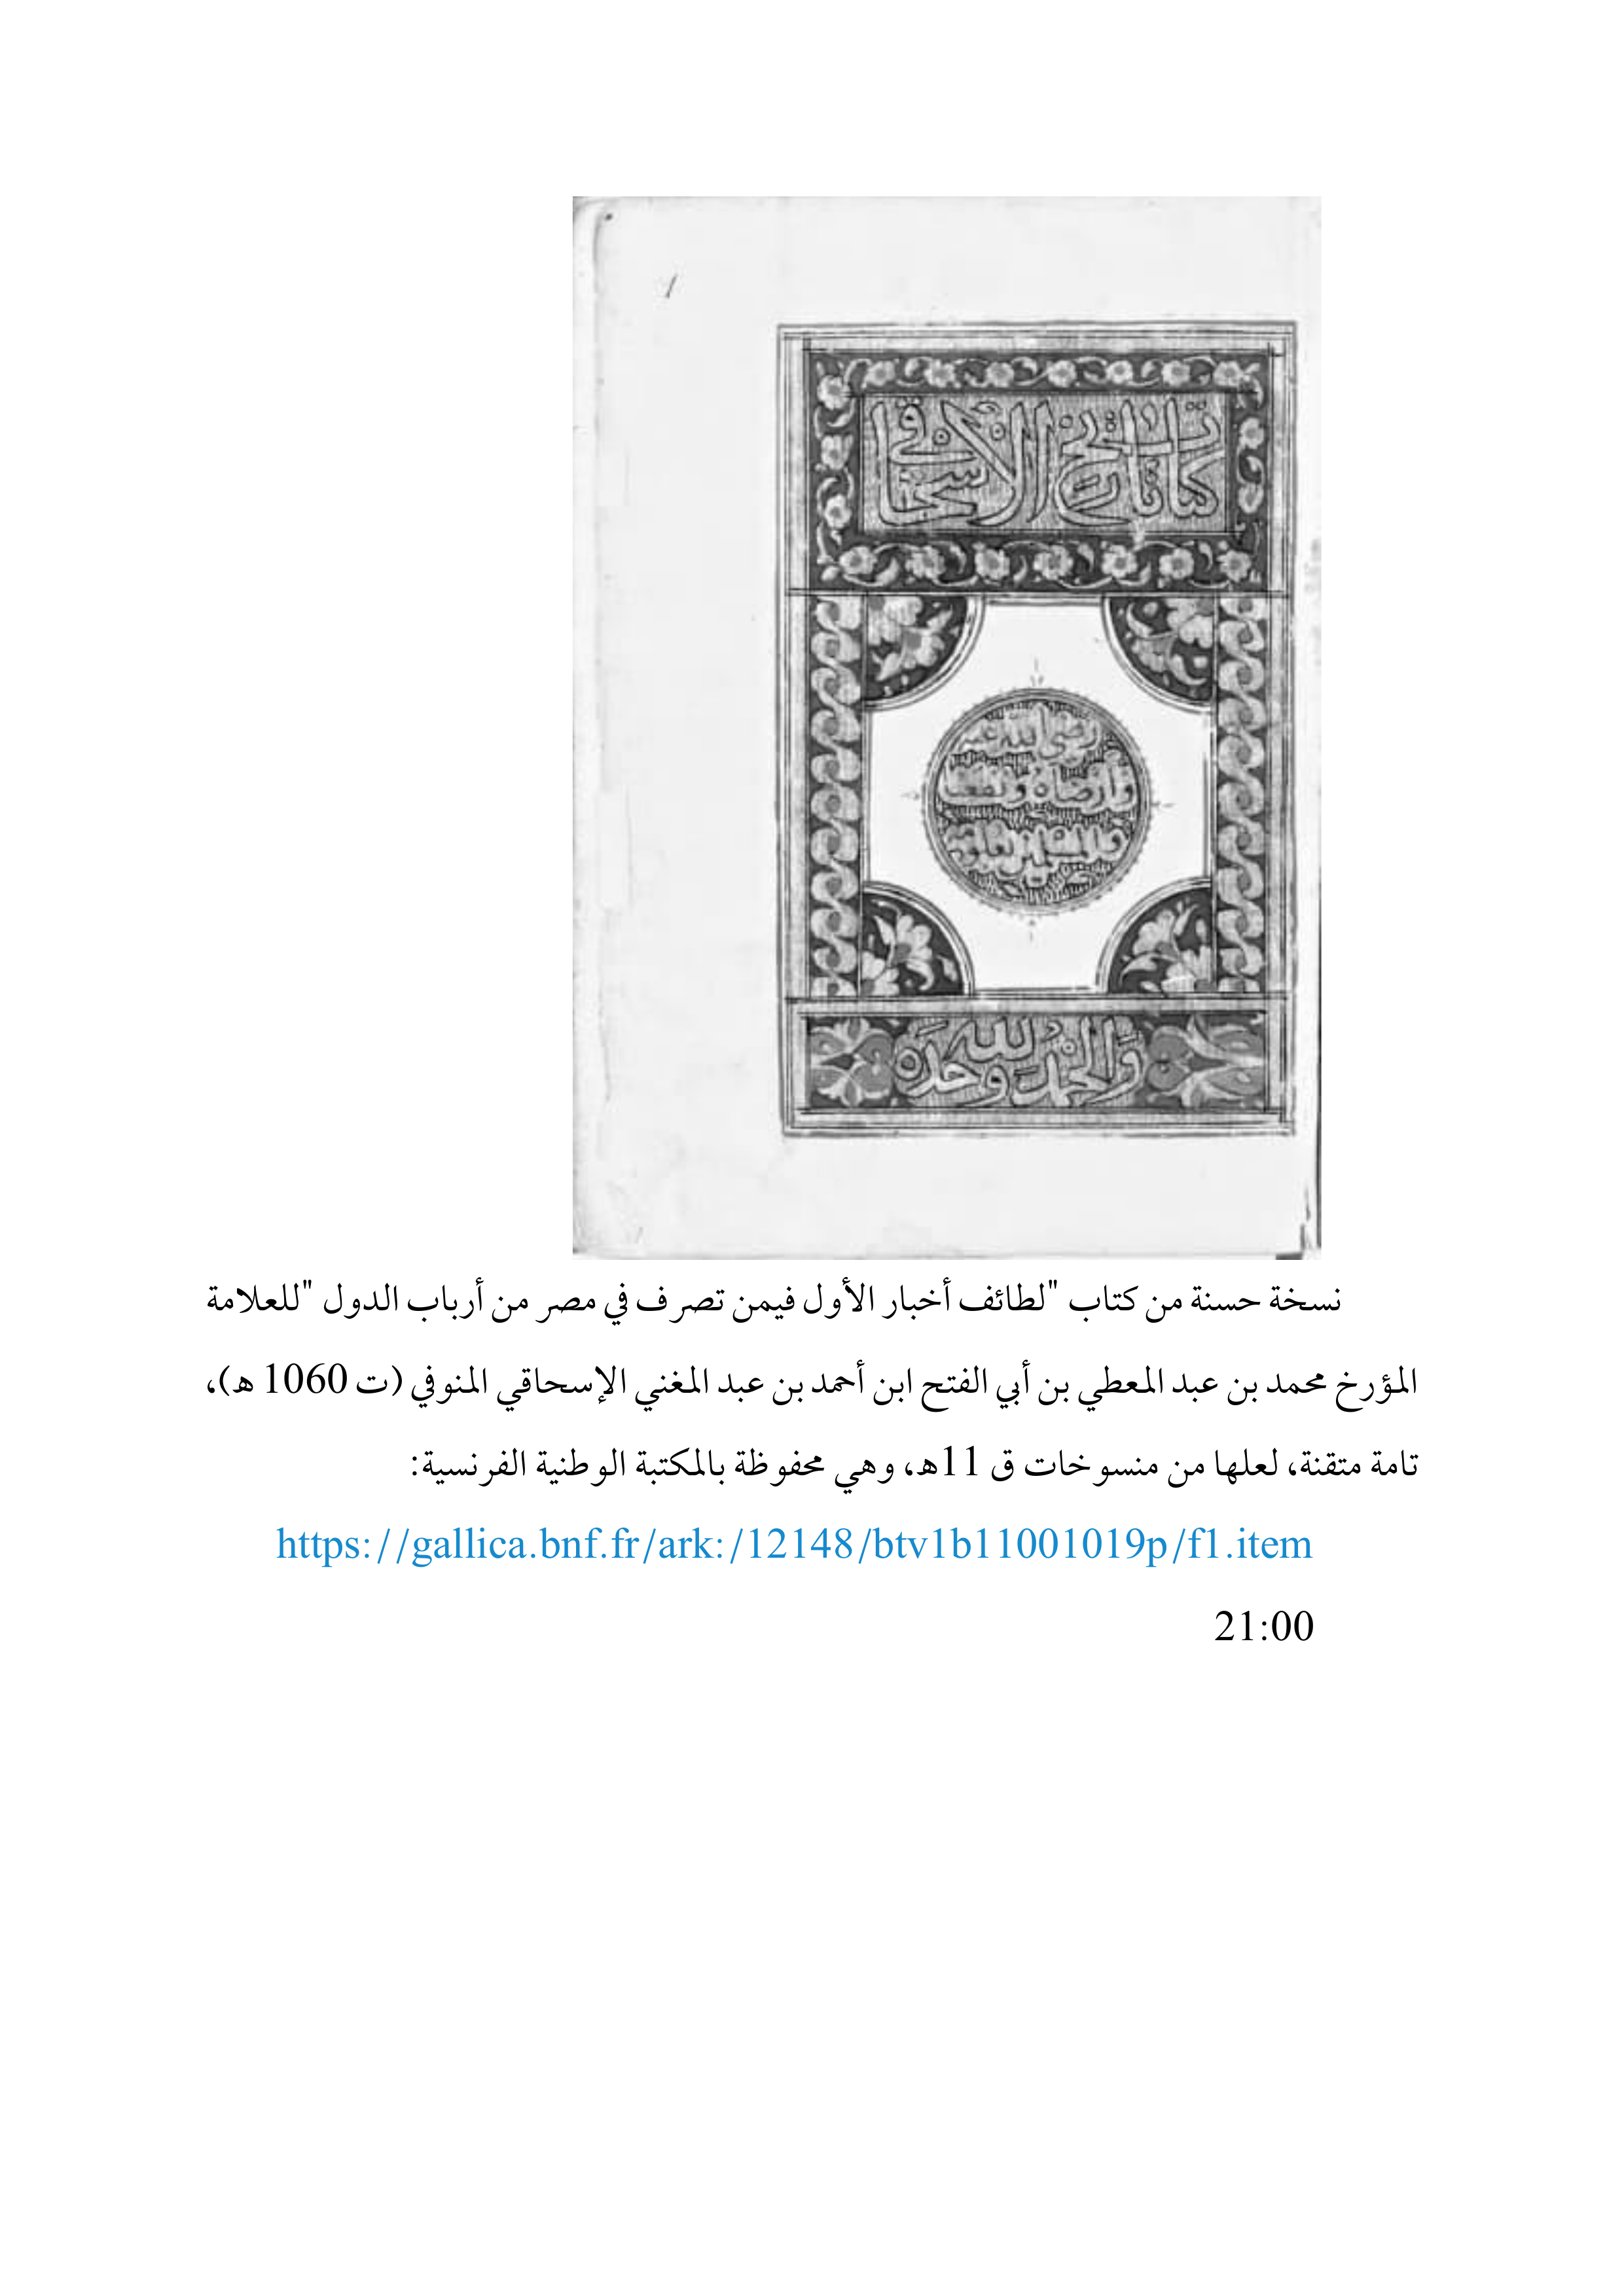 كتاب تاريخ الاسحاقي
رضي الله عنه
وأرضاه ونفعنا
والحمد لله وحده
نسخة حسنة من كتاب "لطائف أخبار الأول فيمن تصرف في مصر من أرباب الدول "للعلامة
المؤرخ محمد بن عبد المعطي بن أبي الفتح ابن أحمد بن عبد المغني الإسحاقي المنوفي (ت 1060 ه)،
تامة متقنة، لعلها من منسوخات ق 11ه، وهي محفوظة بالمكتبة الوطنية الفرنسية:
https://gallica.bnf.fr/ark:/12148/btv1b11001019p/f1.item
21:00